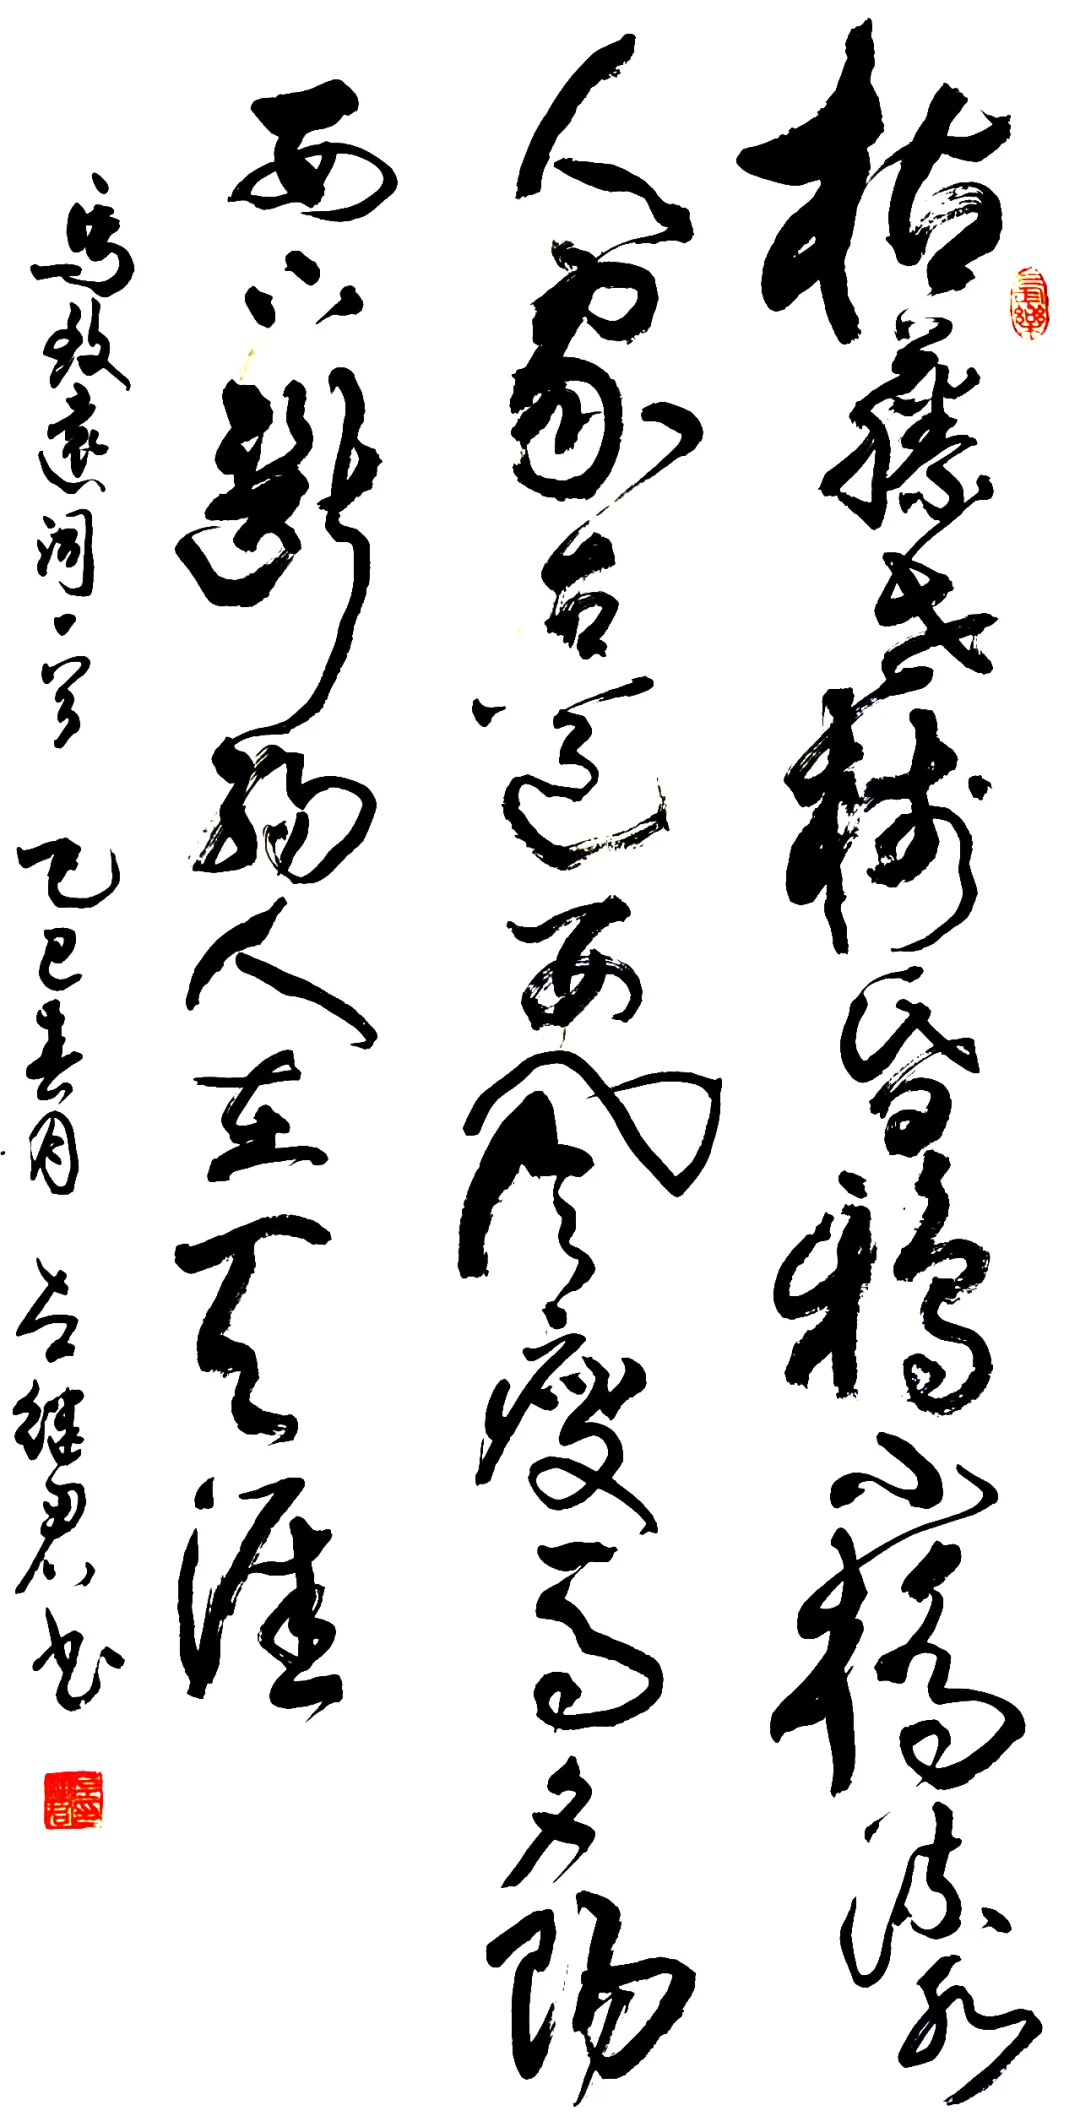 枯藤老樹昏鴉小橋流水
人家古道西風瘦馬夕陽
西下斷腸人在天涯
馬致遠词一首 乙巳春月 继君书